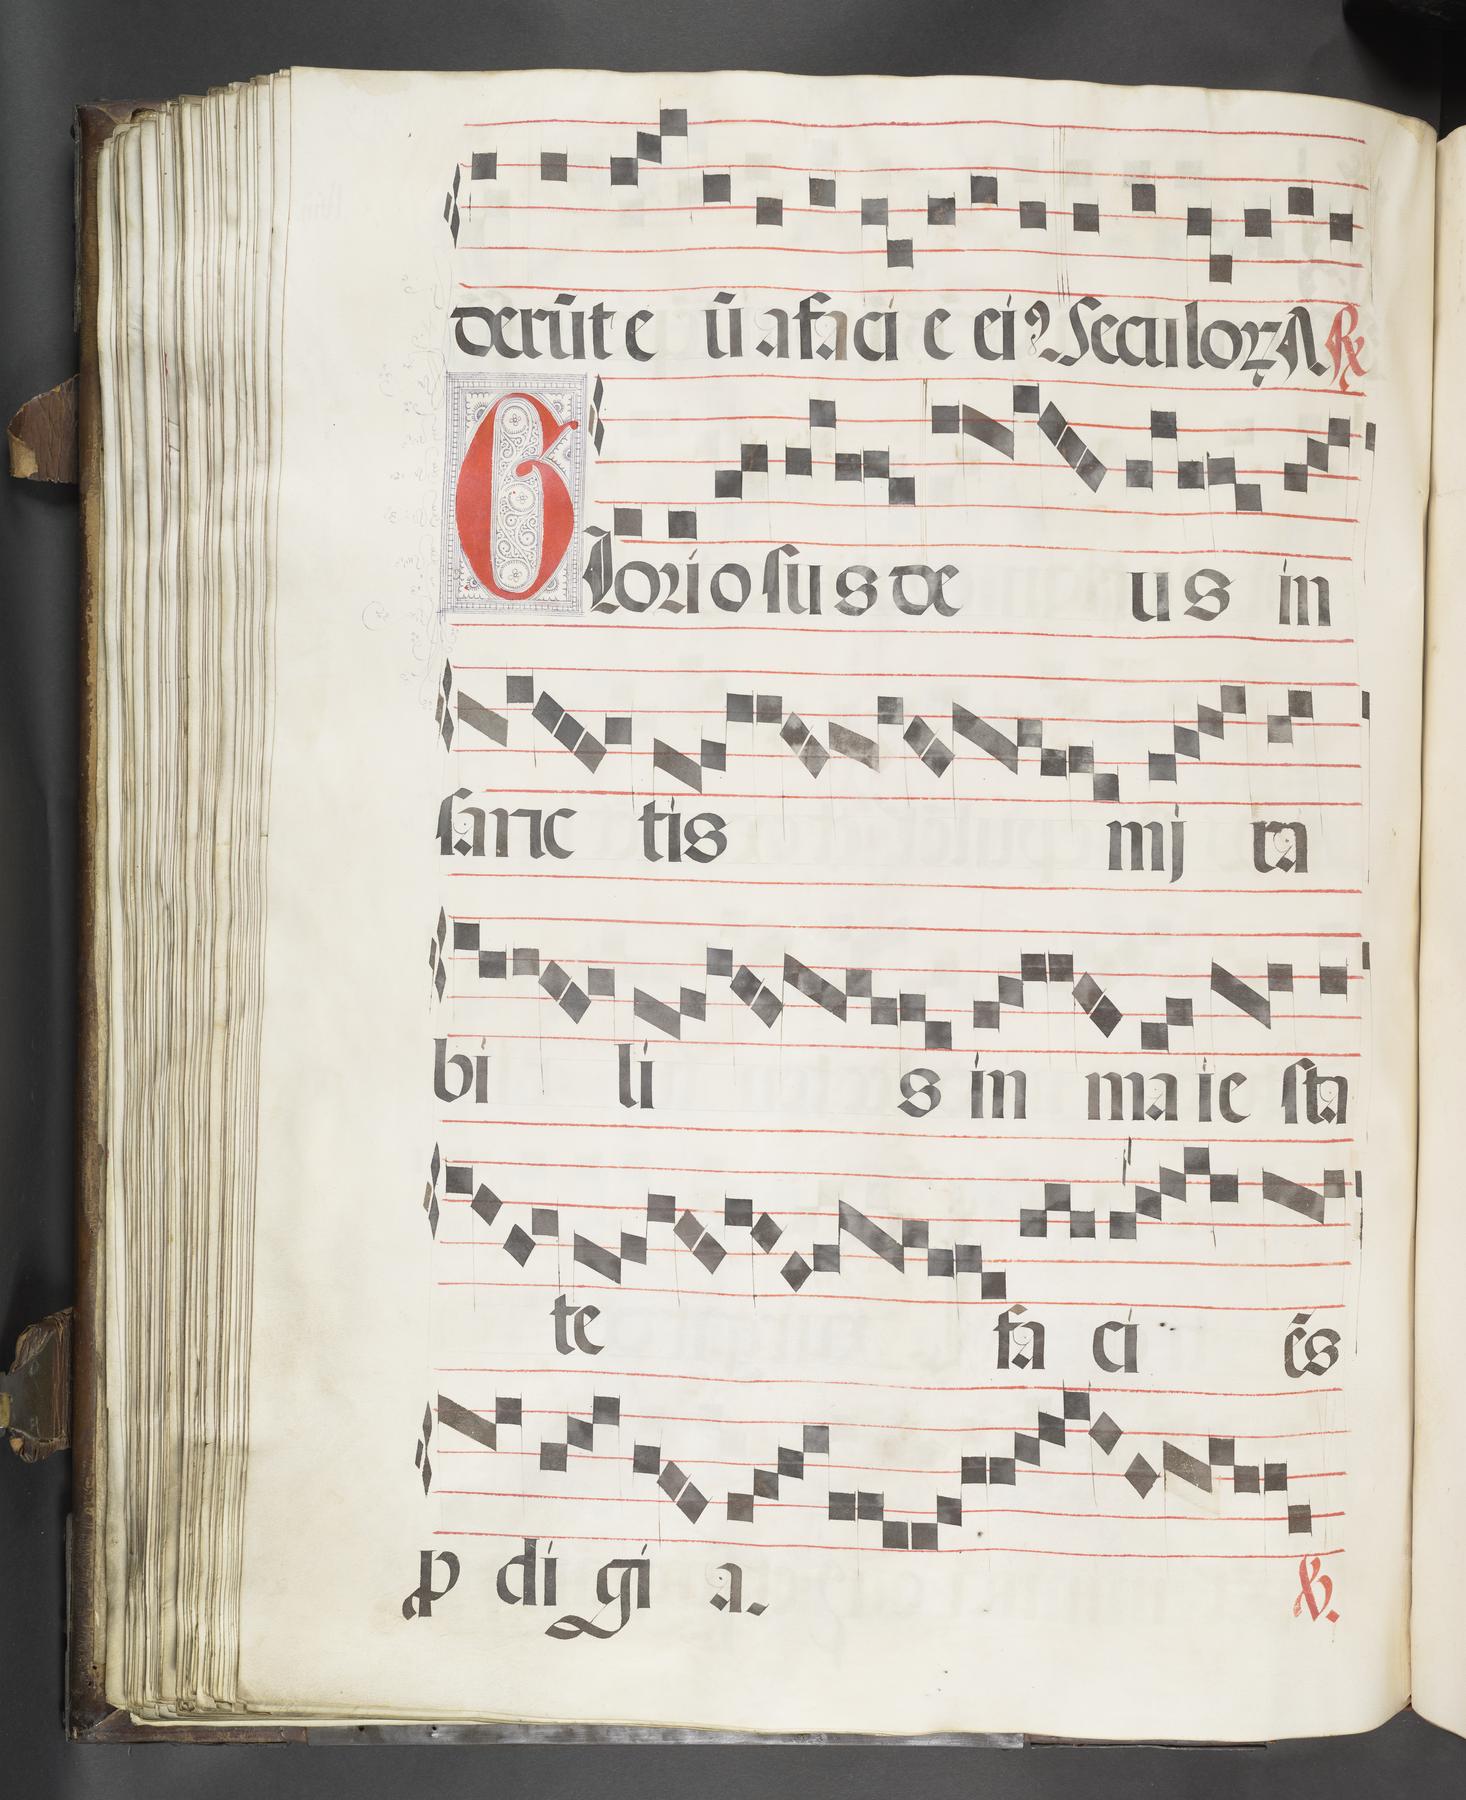 derūt e ū a faci e ei⁹ Seculoꝝ A ℞
Gloriosus de us in
sanc tis mj ra
bi li s in ma ie sta
te fa ci ēs
ꝓ di gi a. ℣.